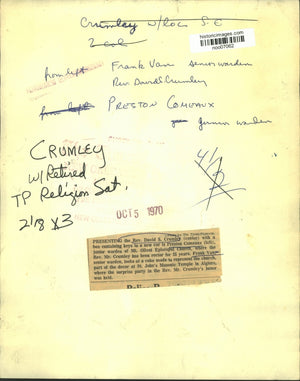 Crumley w/Rocs S.C
2 col
historicimages.com
noo07062
from left Frank Van senior warden
Rev. David S Crumley
from left PRESTON COMEAUX
junior warden
CRUMLEY
W/Retired
TP Religion Sat.
2/18 X3
OCT 5 1970
PRESENTING the Rev. David S. Crumley (center) with a
box containing keys to a new car is Preston Comeaux (left),
junior warden of Mt. Olivet Episcopal Church, where the
Rev. Mr. Crumley has been rector for 25 years. Frank Vann
senior warden, looks at a cake made to represent the church,
part of the decor at St. John's Masonic Temple in Algiers,
where the surprise party in the Rev. Mr. Crumley's honor
was held.